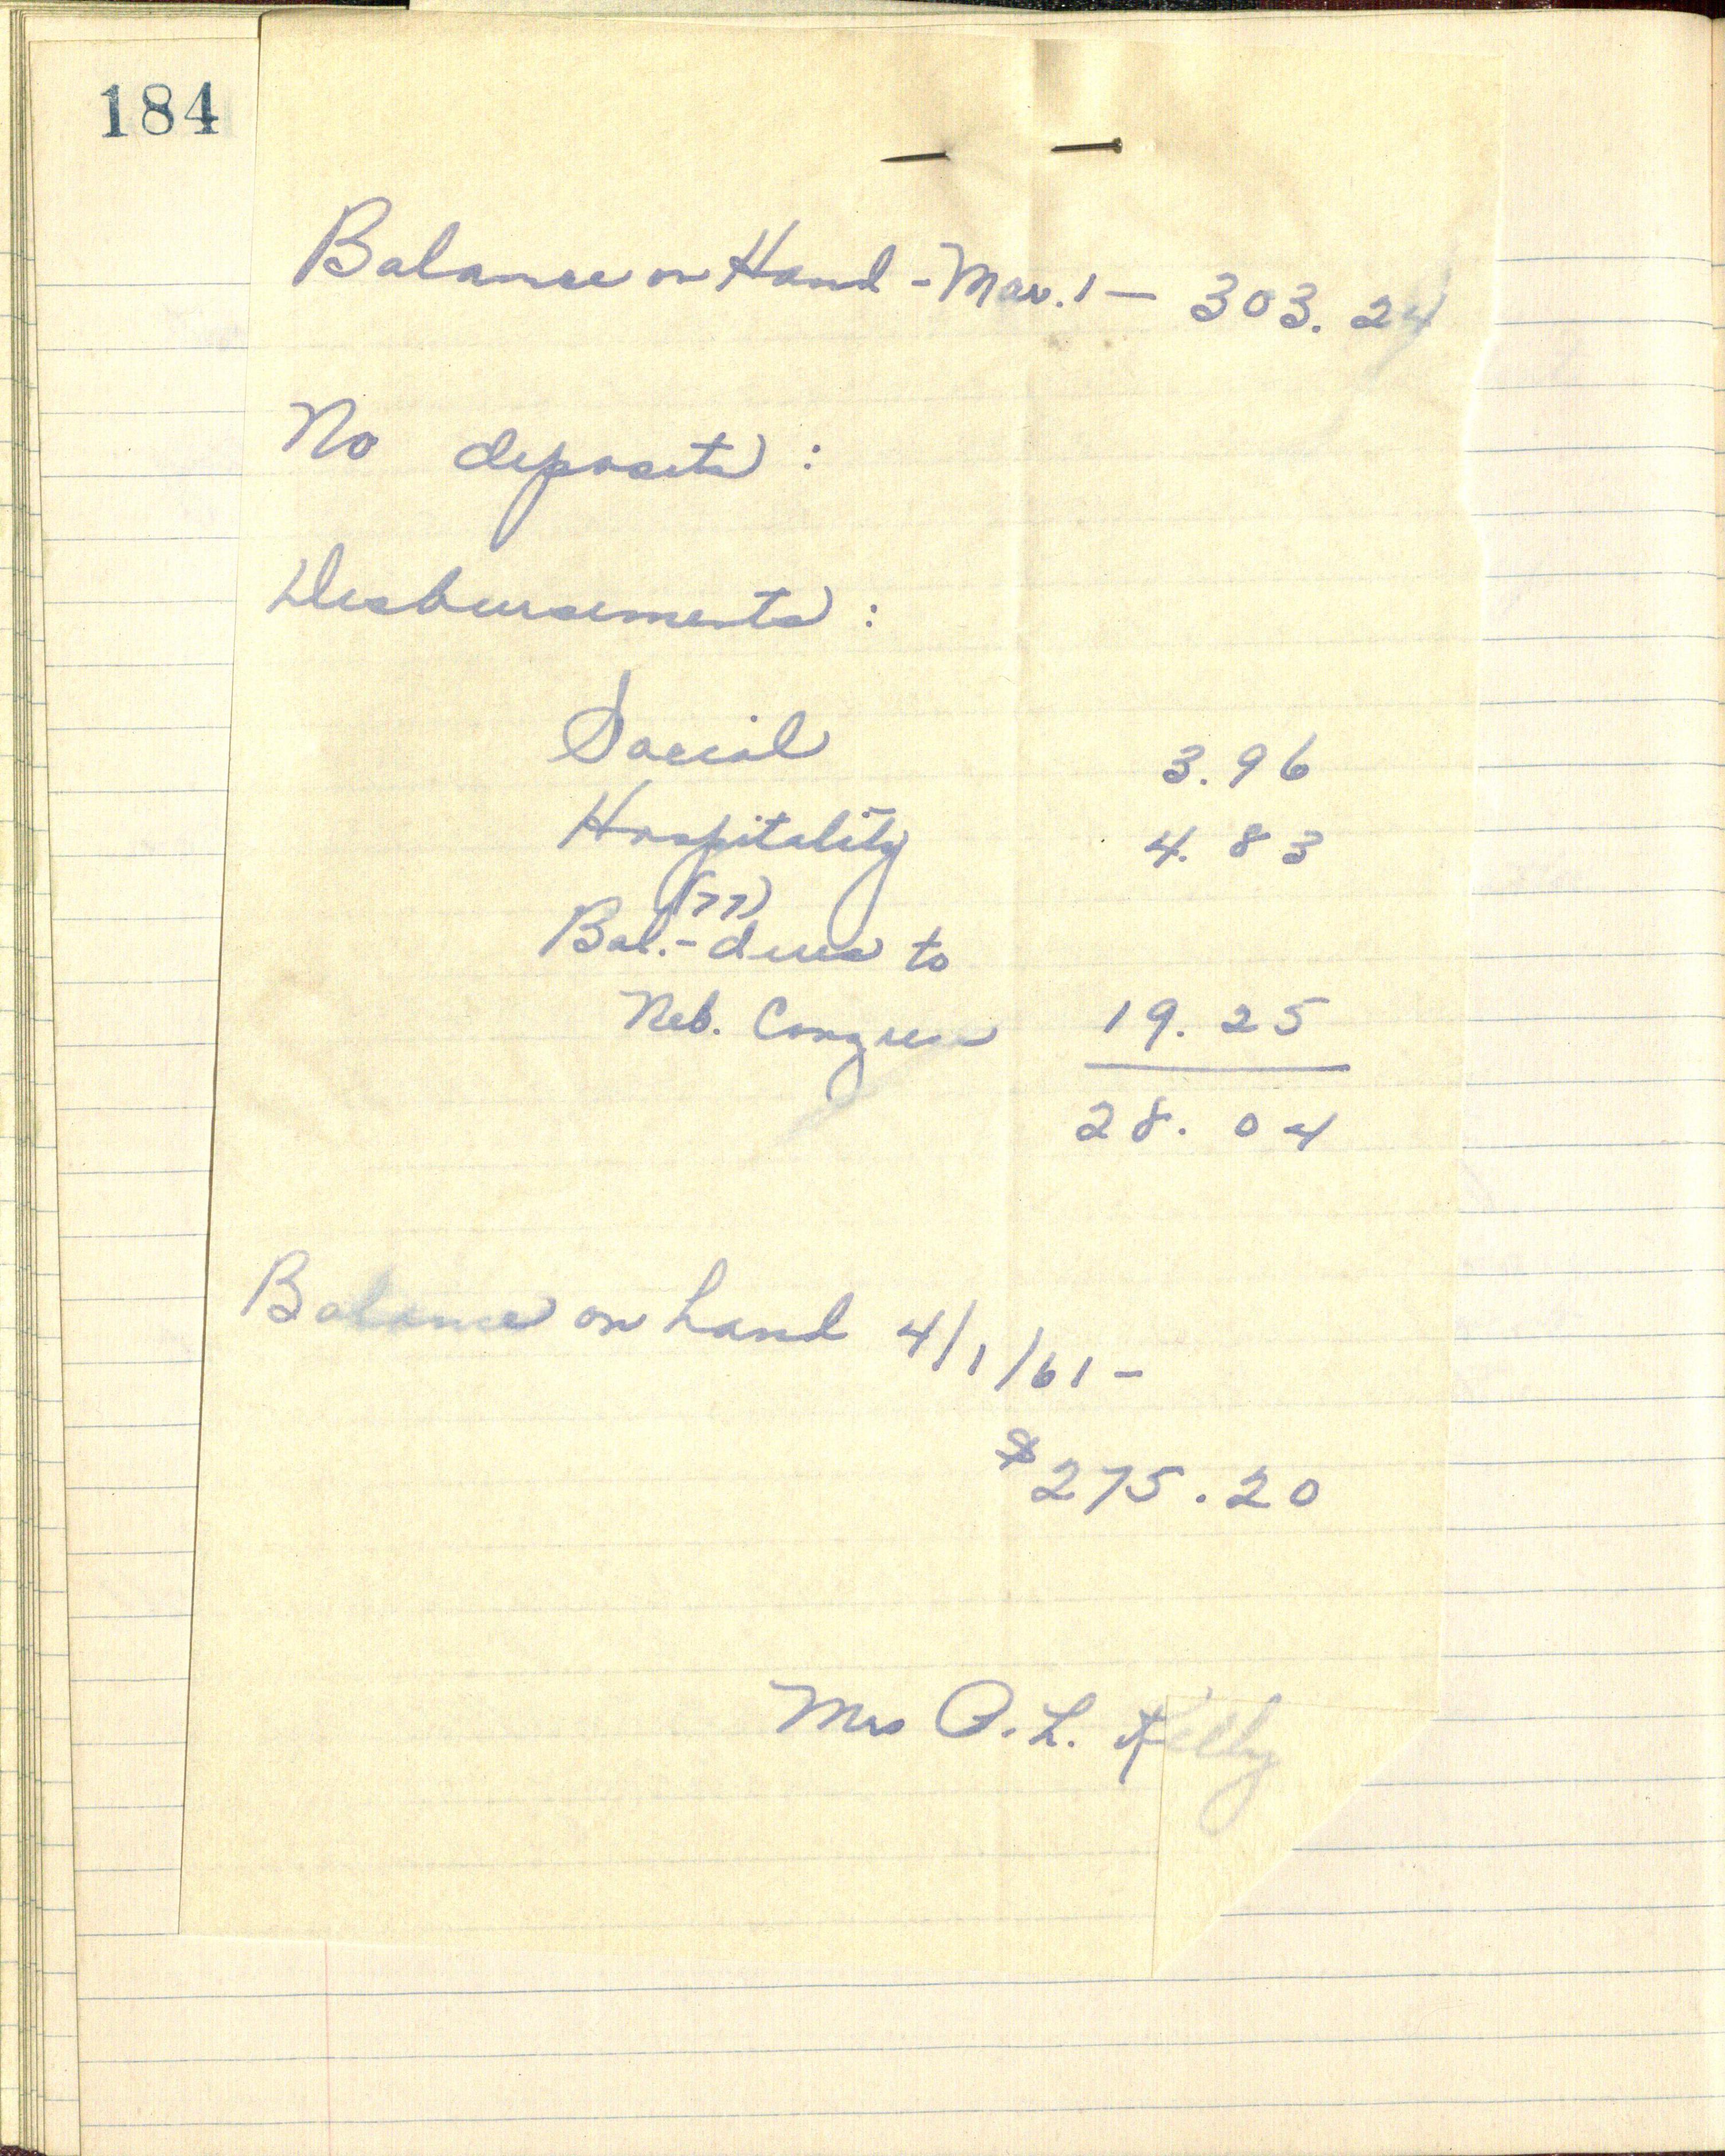 184
Balance on Hand - Mar. 1 — 303.24
No deposits :
Disbursements :
Social 3.96
Hospitality 4.83
(77)
Bal. - dues to
Neb. Congress 19.25
28.04
Balance on hand 4/1/61 -
$275.20
Mrs O. L. Kilby